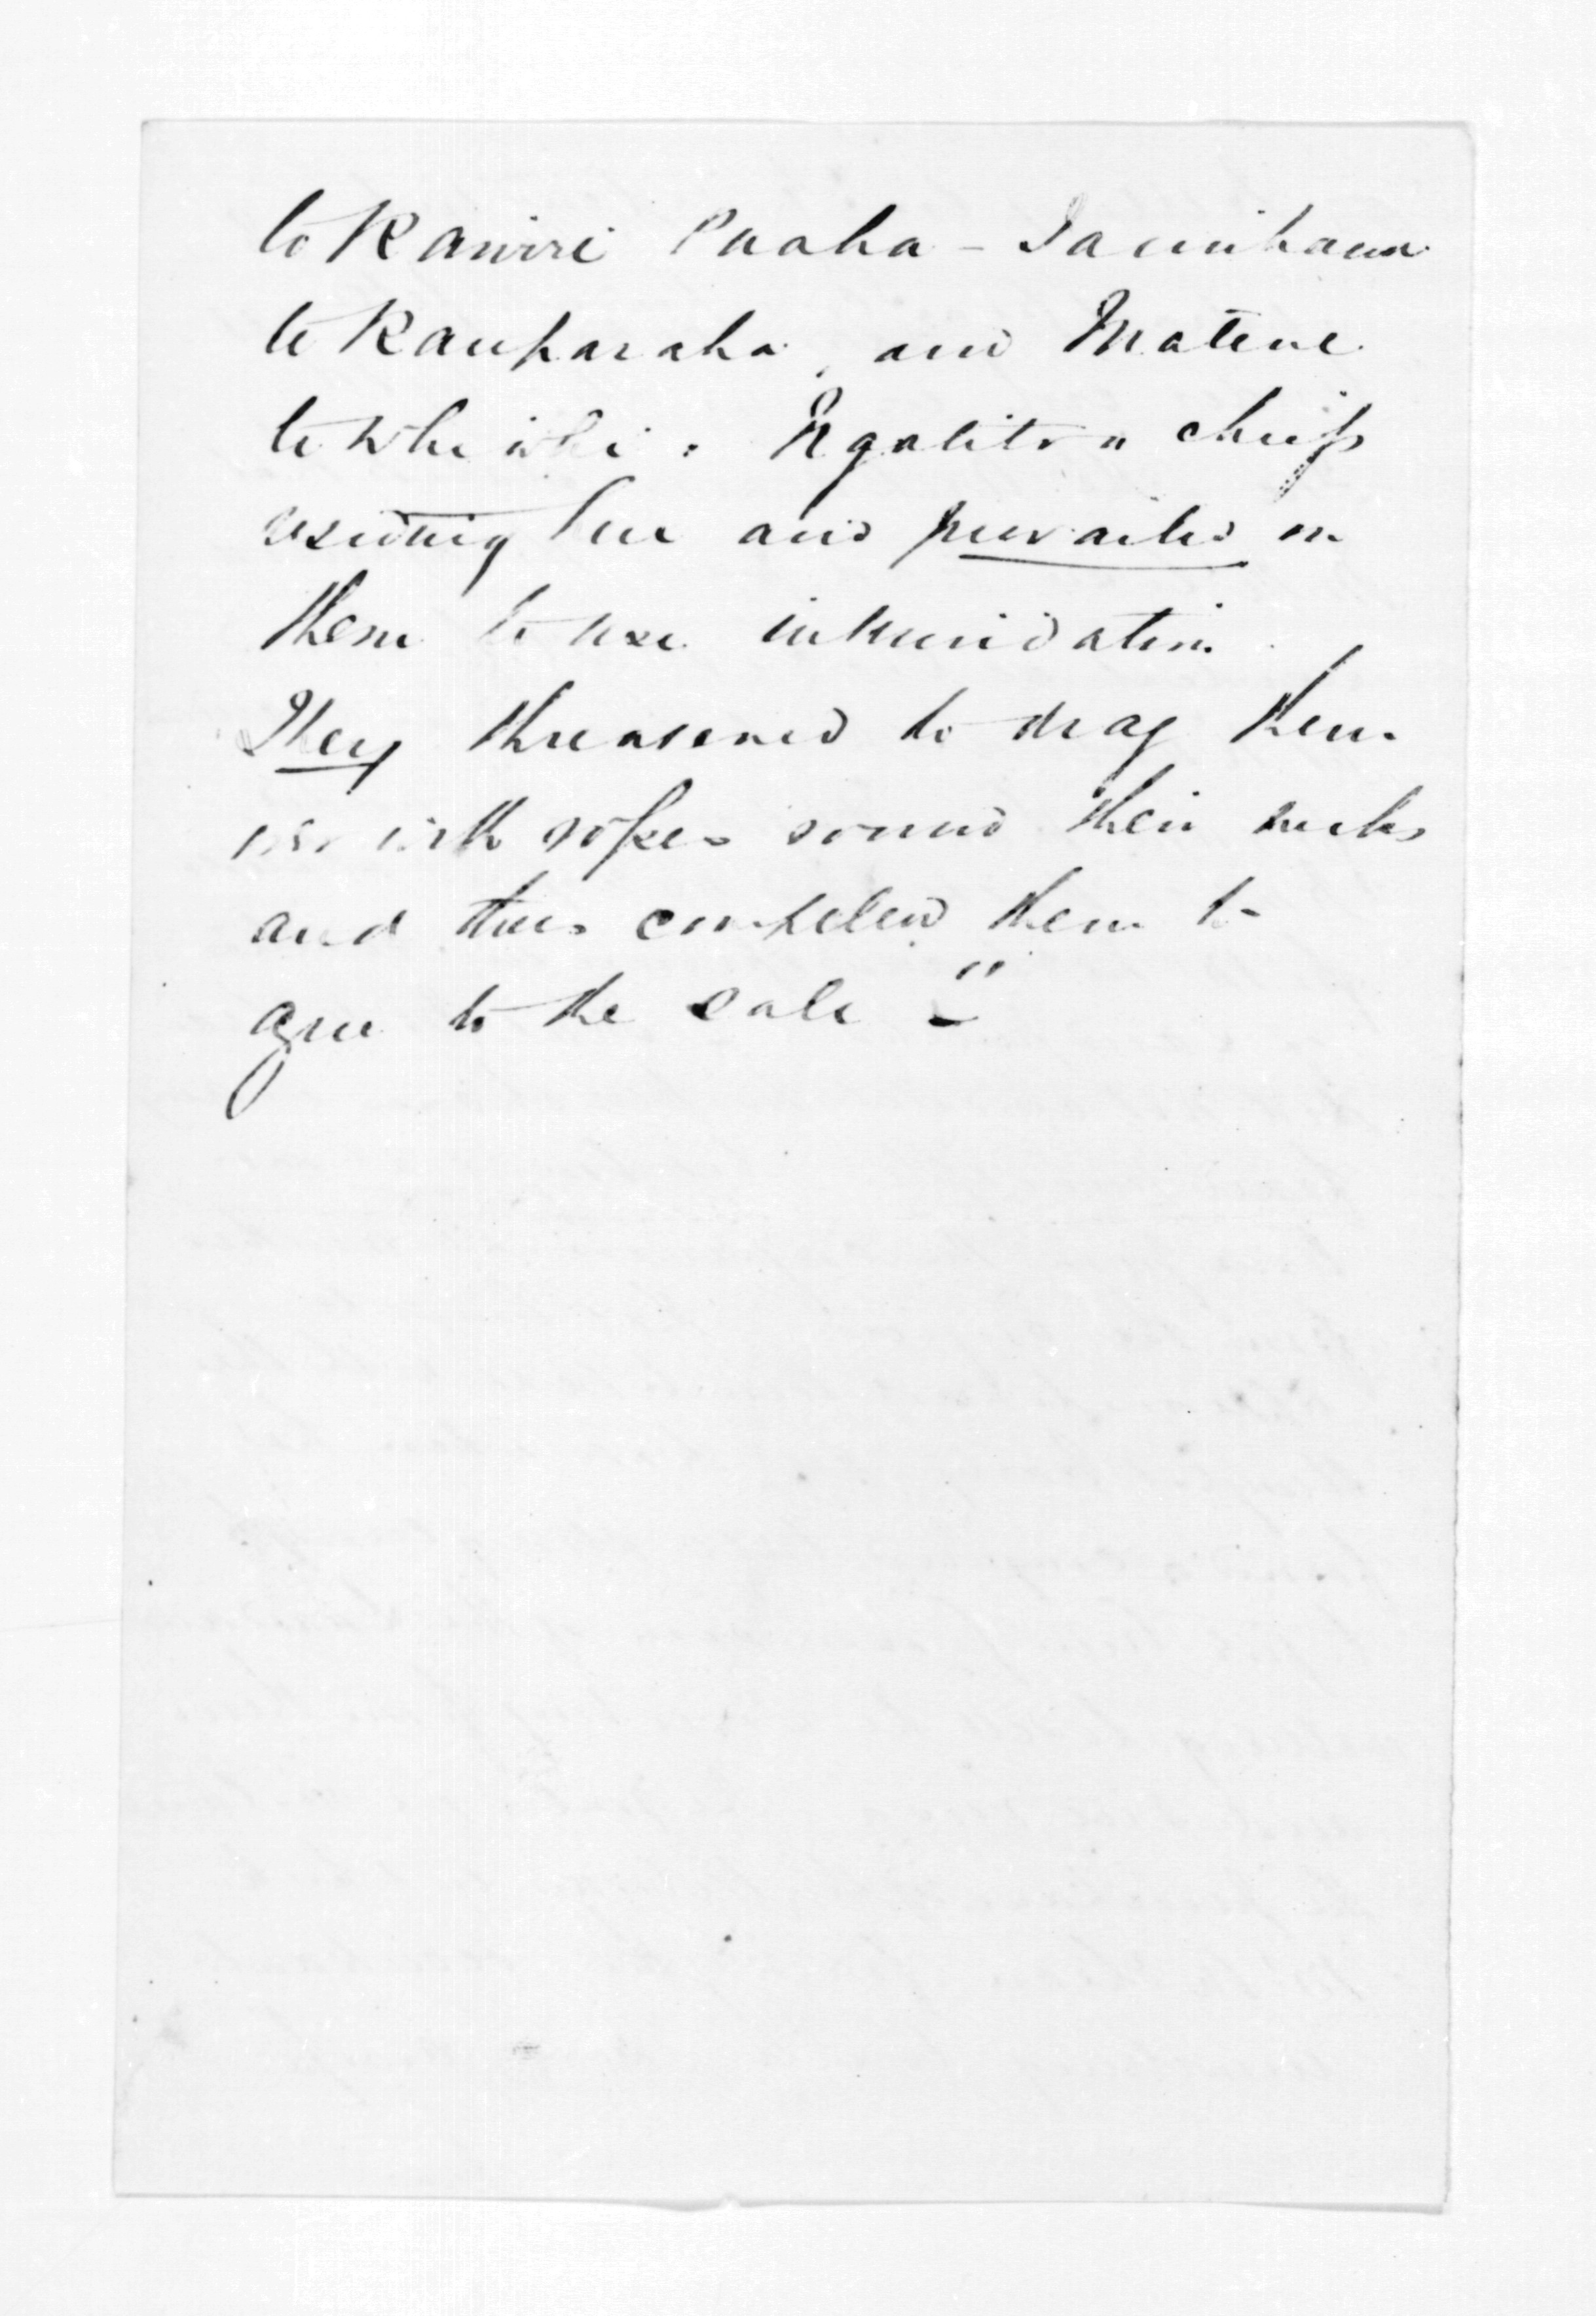 to Rawiri Puaha - Tamihana
te Rauparaha, and Matene
te Whiwhi: Ngatitoa chiefs
residing here and prevailed on
them to use intimidation.
They threatened to drag them
with ropes round their necks
and thus compelled them to
agree to the sale –"